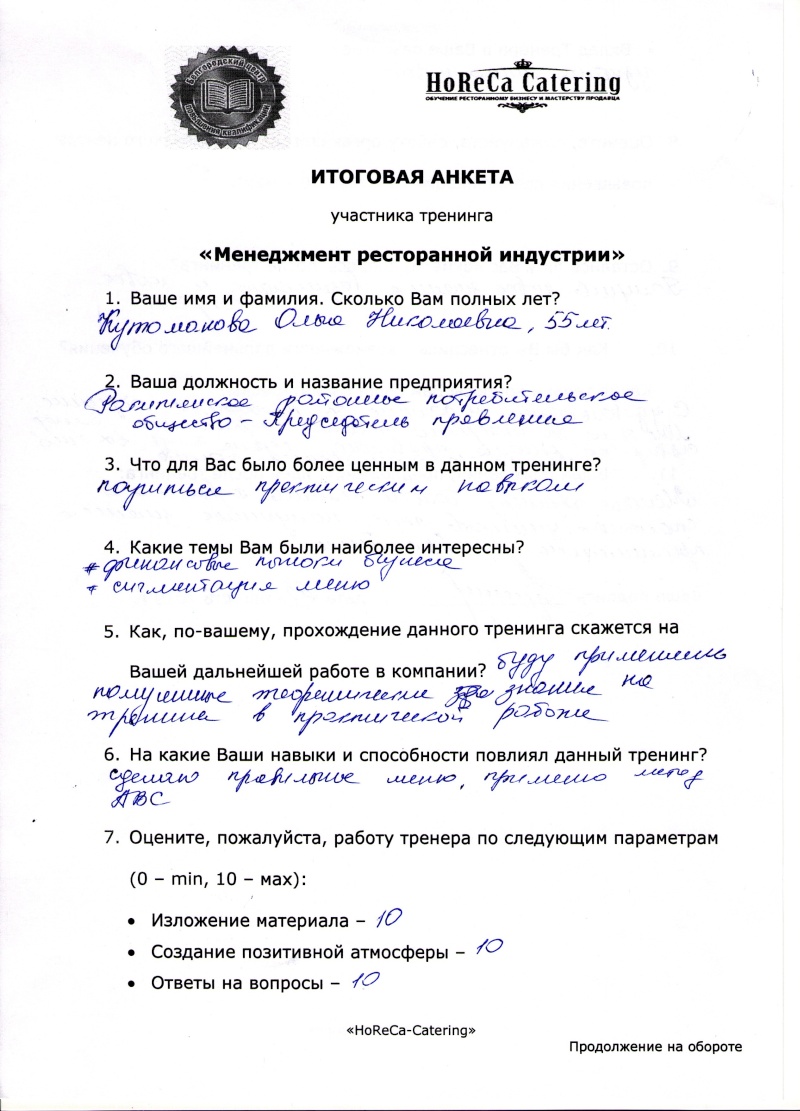 Белгородский центр
повышения квалификации
HoReCa Catering
ОБУЧЕНИЕ РЕСТОРАННОМУ БИЗНЕСУ И МАСТЕРСТВУ ПРОДАВЦА
ИТОГОВАЯ АНКЕТА
участника тренинга
«Менеджмент ресторанной индустрии»
1. Ваше имя и фамилия. Сколько Вам полных лет?
Кутоманова Ольга Николаевна, 55 лет.
2. Ваша должность и название предприятия?
Ракитянское районное потребительское
общество – Председатель правления
3. Что для Вас было более ценным в данном тренинге?
поучиться практическим навыкам
4. Какие темы Вам были наиболее интересны?
* финансовые потоки бизнеса
* сигментация меню
5. Как, по-вашему, прохождение данного тренинга скажется на
Вашей дальнейшей работе в компании? буду применять
полученные теоретические знания на
тренинге в практической работе
6. На какие Ваши навыки и способности повлиял данный тренинг?
сделаю правильное меню, применю метод
АВС
7. Оцените, пожалуйста, работу тренера по следующим параметрам
(0 – min, 10 – мах):
• Изложение материала – 10
• Создание позитивной атмосферы – 10
• Ответы на вопросы – 10
«HoReCa-Catering»
Продолжение на обороте